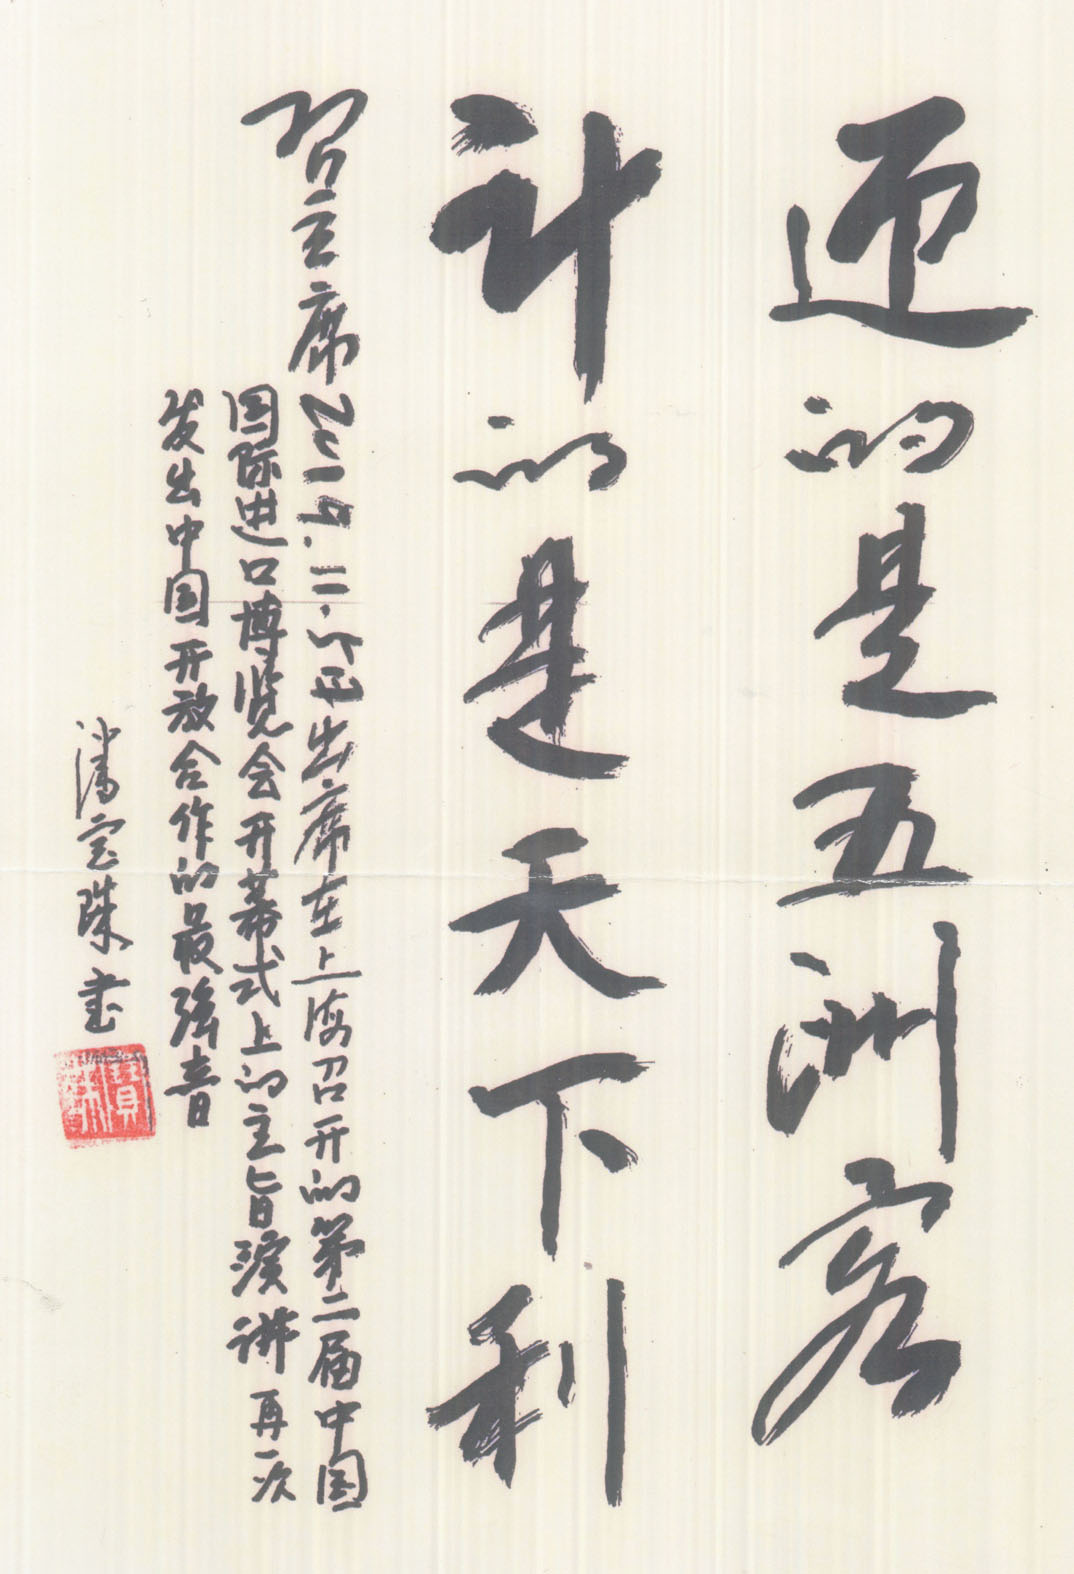 迎的是五洲客
计的是天下利
習主席2019.11.5日出席在上海召开的第二届中国
国际进口博览会开幕式上的主旨演讲再一次
发出中国开放合作的最强音
潘宝珠书
寶珠